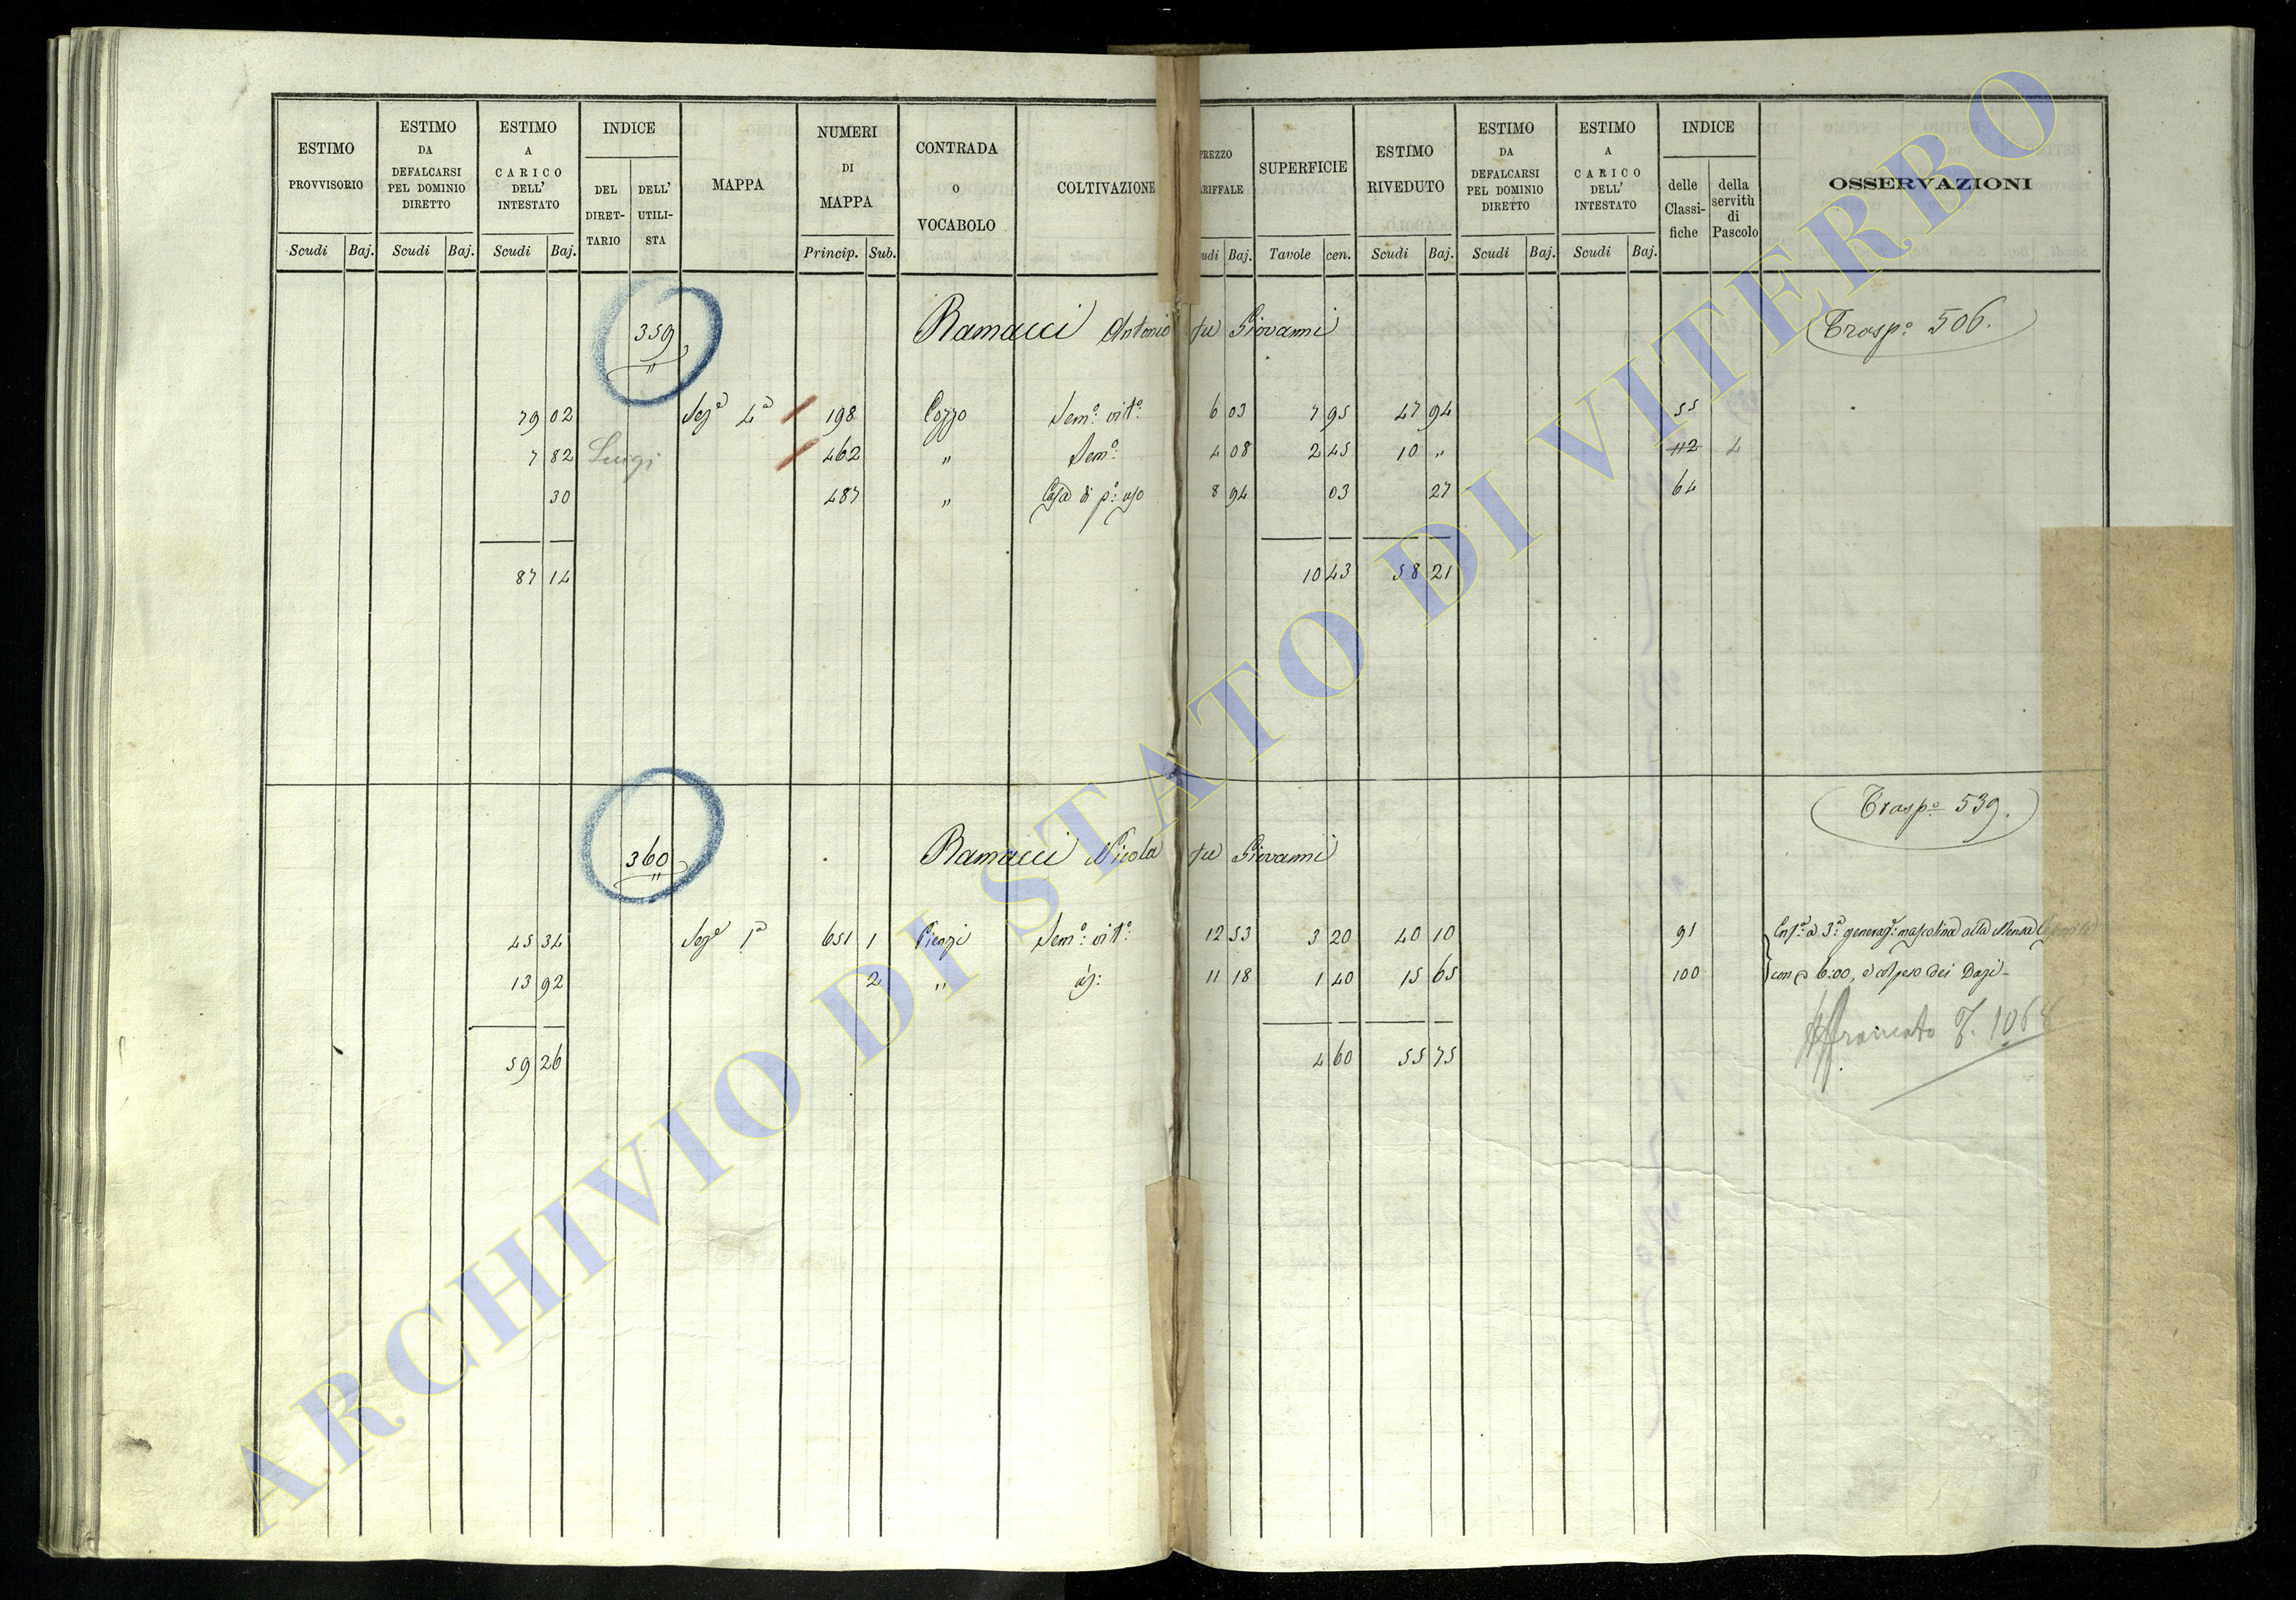 ESTIMO PROVVISORIO Scudi Baj. ESTIMO DA DEFALCARSI PEL DOMINIO DIRETTO Scudi Baj. ESTIMO A CARICO DELL' INTESTATO Scudi Baj. INDICE DEL DIRETTARIO DELL' UTILISTA MAPPA NUMERI DI MAPPA Princip. Sub. CONTRADA O VOCABOLO COLTIVAZIONE PREZZO TARIFFALE Scudi Baj. SUPERFICIE Tavole cen. ESTIMO RIVEDUTO Scudi Baj. ESTIMO DA DEFALCARSI PEL DOMINIO DIRETTO Scudi Baj. ESTIMO A CARICO DELL' INTESTATO Scudi Baj. INDICE delle Classifiche della servitù di Pascolo OSSERVAZIONI
359 Ramacci Antonio fu Giovanni Trasp.o 506.
79 02 Sez.e 4a 198 Cozzo Sem.o vit.o 6 03 7 95 47 94 55
7 82 Luigi 462 " Sem.o 4 08 2 45 10 " 112 4
30 487 " Casa di p.o uso 8 94 03 27 64
87 14 10 43 58 21
360 Ramacci Nicola fu Giovanni Trasp.o 539.
45 34 Sez.e 1a 651 1 Pienzi Sem.o vit.o 12 53 3 20 40 10 91 Enf.a a 3a generaz.e mascolina alla Mensa
13 92 2 " id: 11 18 1 40 15 65 100 con 6:00, e col peso dei Dazi-
Affrancato F. 1068
59 26 4 60 55 75
ARCHIVIO DI STATO DI VITERBO